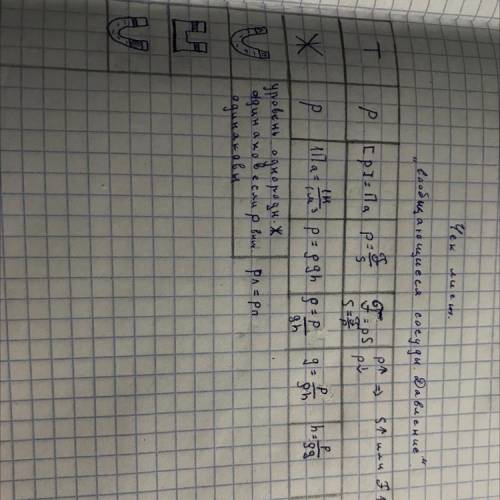 Чек лист.
"Сообщающиеся сосуды. Давление"
Т p [p] = Па p = F/S F = pS S = F/p p↑ ⇒ S↑ или F
p↓
Ж p 1Па = 1Н/1м³ p = ρgh ρ = p/gh g = p/ρh h = p/ρg
уровень однородн. Ж
одинаков если p вни. pл = pп
одинаковы